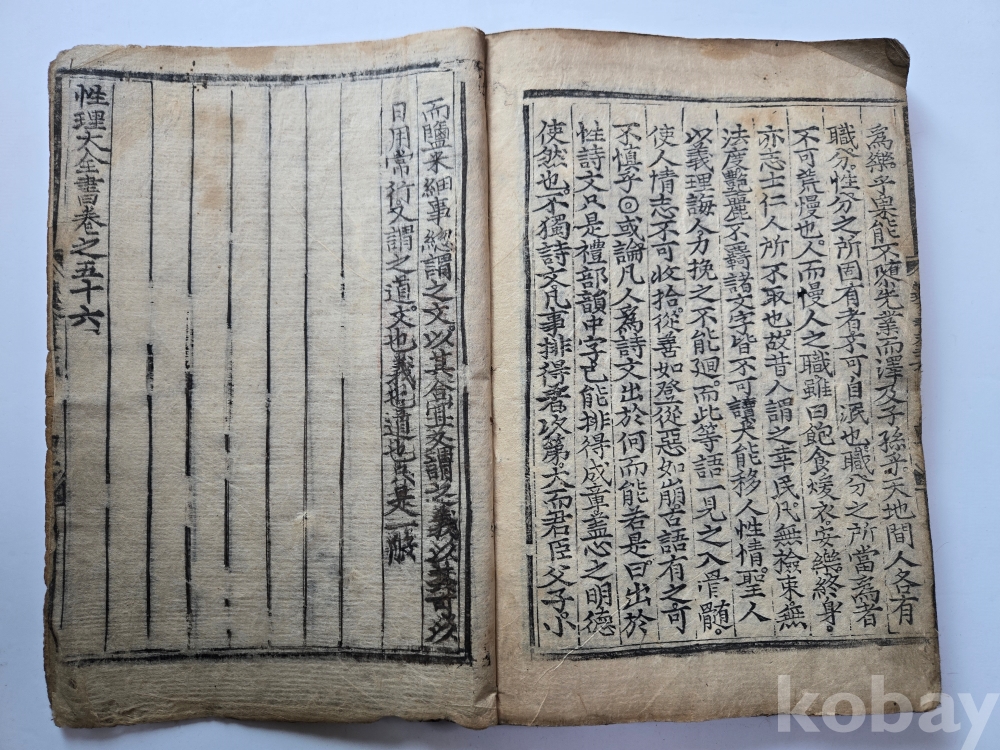 爲樂乎稟能不隳先業而澤及子孫乎天地間人各有
職分性分之所固有者不可自泯也職分之所當爲者
不可荒慢也人而慢人之職雖曰飽食煖衣安樂終身
亦志士仁人所不取也故昔人謂之幸民凡無撿束無
法度艶麗不羈諸文字皆不可讀大能移人性情聖人
以義理誨人力挽之不能廻而此等語一見之入骨髓
使人情志不可收拾從善如登從惡如崩古語有之可
不慎乎◎或論凡人爲詩文出於何而能若是曰出於
性詩文只是禮部韻中字已能排得成章盖心之明德
使然也不獨詩文凡事排得著次第大而君臣父子小
而鹽米細事總謂之文以其合宜又謂之義以其可以
日用常行又謂之道文也義也道也只是一般
性理大全書卷之五十六
kobay